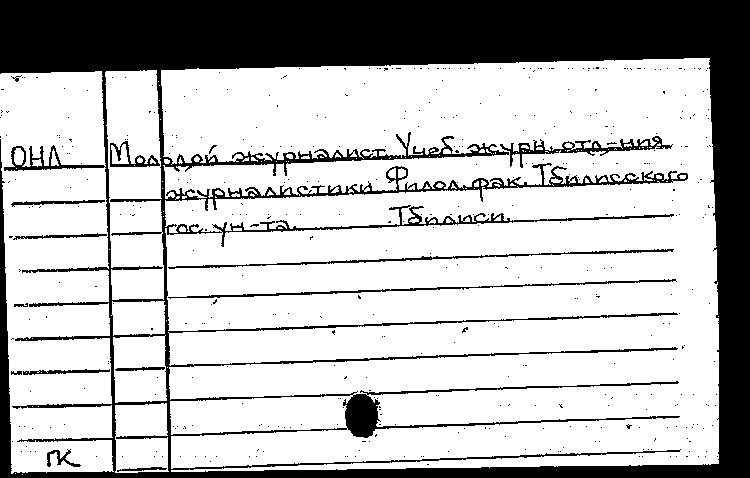 ОНЛ Молодой журналист. Учеб. журн. отд-ния
журналистики Филол. фак. Тбилисского
гос. ун-та. Тбилиси.
ПК